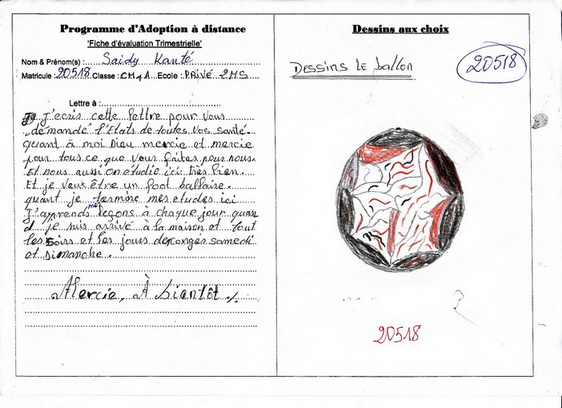 Programme d'Adoption à distance
'Fiche d'évaluation Trimestrielle'
Nom & Prénom(s) : Saidy Kanté
Matricule 20518 Classe : CM1A Ecole : PRIVÉ 2MS
Lettre à :
j'ecris cette lettre pour vous
demandé l'Etats de toutes vos santé.
quant à moi Dieu mercie et mercie
pour tous ce que vous faites pour nous.
Et nous aussi on etudie ici très bien.
Et je veus être un foot ballaire.
quant je termine mes etudes ici
J'apprends mes leçons à chaque jour quan
d je suis arrivé à la maison et tout
les soirs et les jours de conges samedi
et Dimanche.
Mercie, À bientôt
Dessins aux choix
Dessins le ballon
20518
20518